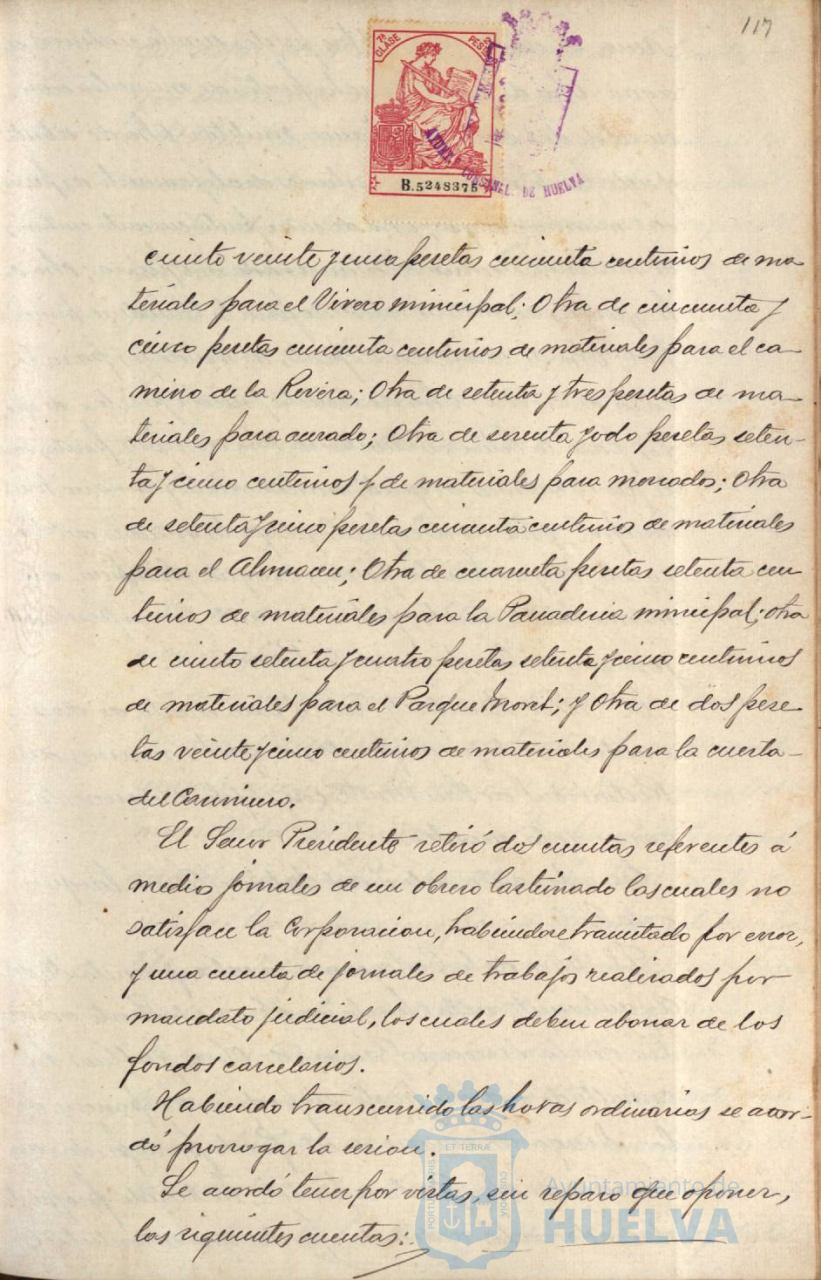 117
7ª CLASE
PESETAS
B.5248375
AYUNT CONSTNEL. DE HUELVA
ciento veinte y una pesetas cincuenta centimos de ma
teriales para el Vivero municipal; Otra de cincuenta y
cinco pesetas cincuenta centimos de materiales para el ca-
mino de la Rivera; Otra de setenta y tres pesetas de ma-
teriales para acerado; Otra de sesenta y odo pesetas seten-
ta y cinco centimos de materiales para mercados; Otra
de setenta y cinco pesetas cincuenta centimos de materiales
para el Almacen; Otra de cuarenta pesetas setenta cen
timos de materiales para la Panaderia municipal; otra
de ciento setenta y cuatro pesetas setenta y cinco centimos
de materiales para el Parque Moret; y Otra de dos pese
tas veinte y cinco centimos de materiales para la cuesta-
del Carnicero.
El Señor Presidente retiró dos cuentas referentes á
medios jornales de un obrero lastimado las cuales no
satisface la Corporacion, habiendose tramitado por error,
y una cuenta de jornales de trabajos realizados por
mandato judicial, los cuales deben abonar de los
fondos carcelarios.
Habiendo transcurrido las horas ordinarias se acor-
dó prorrogar la sesion.
Se acordó tener por vistas, sin reparo que oponer,
las siguientes cuentas:
PORTUS MARIS ET TERRÆ CUSTODIA
Ayuntamiento de
HUELVA